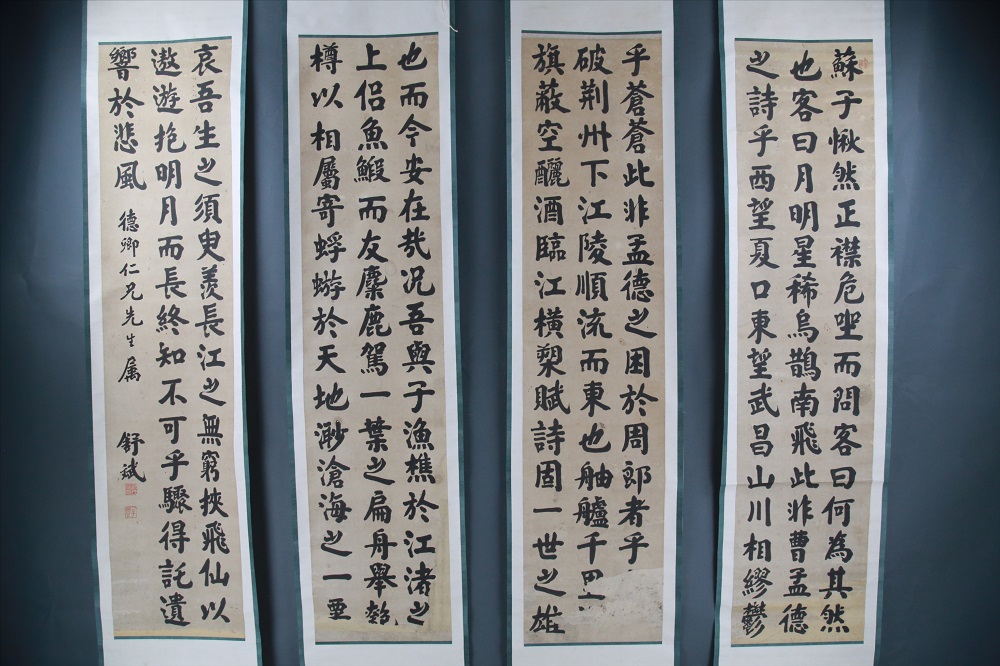 蘇子愀然正襟危坐而問客曰何為其然
也客曰月明星稀烏鵲南飛此非曹孟德
之詩乎西望夏口東望武昌山川相繆鬱
乎蒼蒼此非孟德之困於周郎者乎
破荆州下江陵順流而東也舳艫千
旗蔽空釃酒臨江橫槊賦詩固一世之雄
也而今安在哉况吾與子漁樵於江渚之
上侶魚鰕而友麋鹿駕一葉之扁舟舉匏
樽以相屬寄蜉蝣於天地渺滄海之一粟
哀吾生之須臾羨長江之無窮挾飛仙以
遨遊抱明月而長終知不可乎驟得託遺
響於悲風 德卿仁兄先生属 舒斌